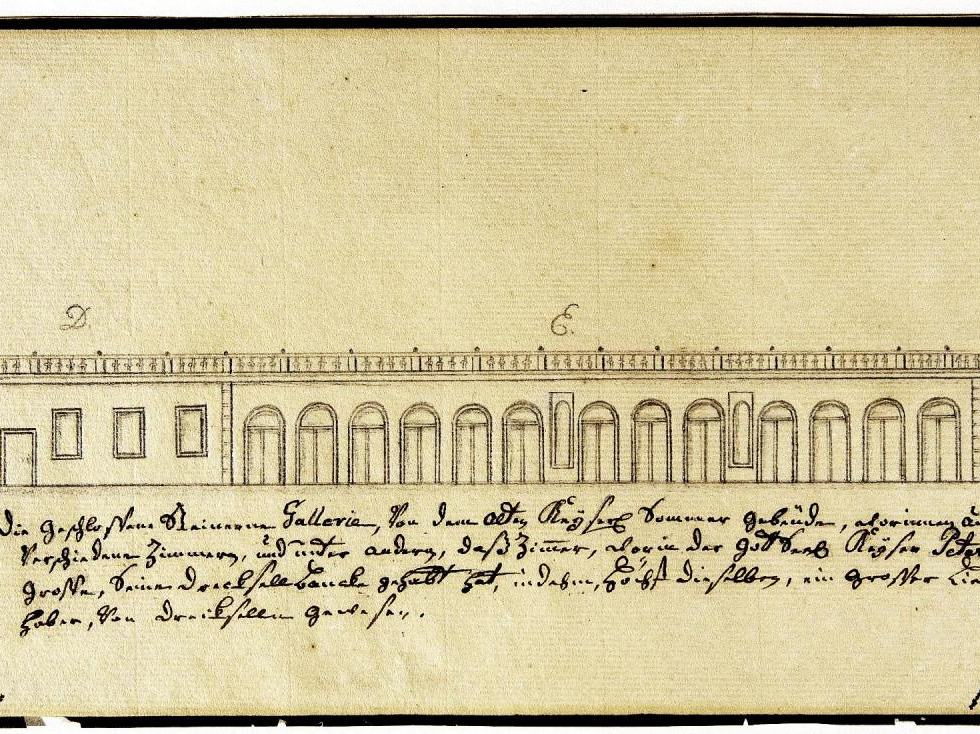 D. E.
Die geschlossene Steinerne Gallerie, Von dem alten Keÿserl Sommer gebeüde, worinnen
Verschiedene Zimmern, und unter andern, daß Zimmer, worin der Gott Seel Keÿser Pet
große, Seine drecksell bancke gehabt hat, indehm, Höchst dieselben, ein grosser Lie
haber, Von dreckselln gewesen.